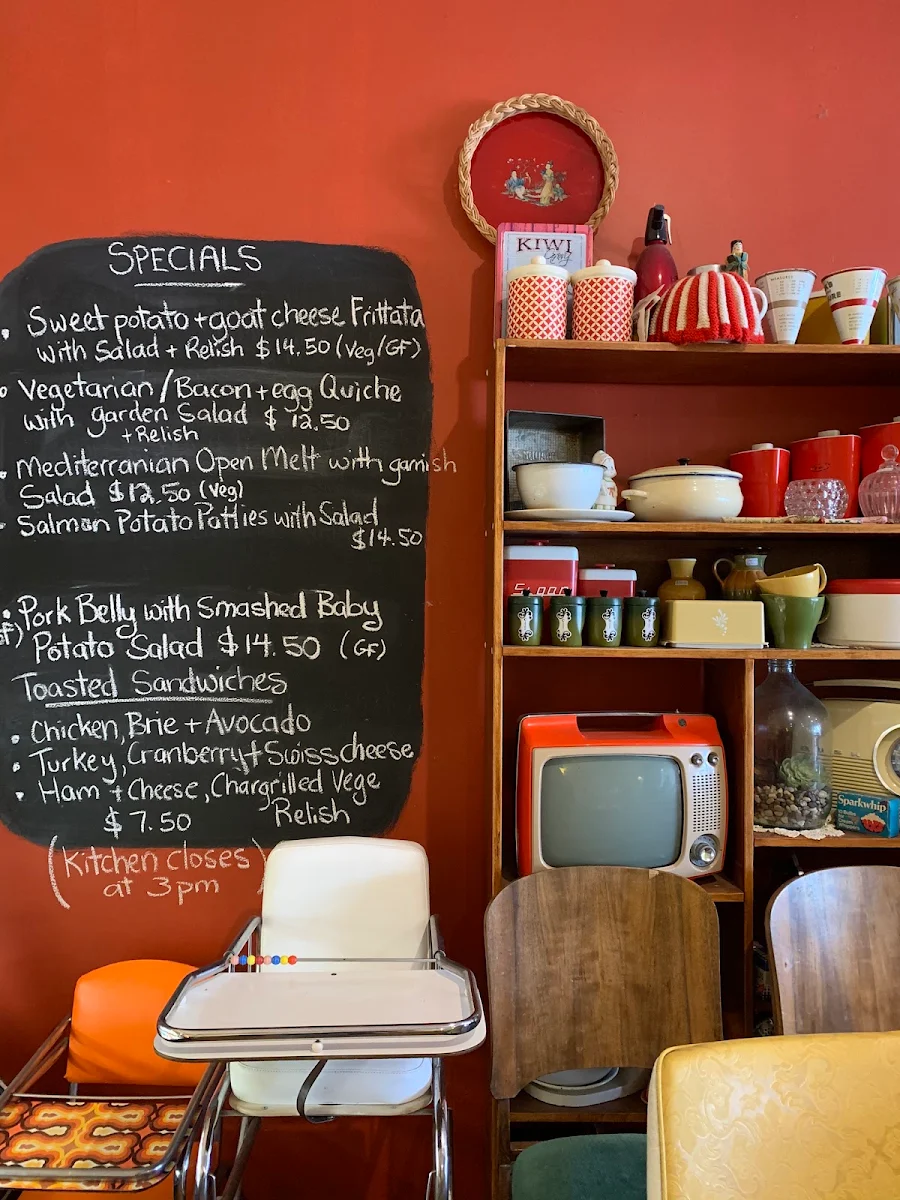 SPECIALS
• Sweet potato + goat cheese Frittata
with Salad + Relish $14.50 (Veg/GF)
• Vegetarian/Bacon + egg Quiche
with garden Salad $12.50
+ Relish
• Mediterranian Open Melt with garnish
Salad $12.50 (veg)
• Salmon Potato Patties with Salad
$14.50
• Pork Belly with Smashed Baby
Potato Salad $14.50 (GF)
Toasted Sandwiches
• Chicken, Brie + Avocado
• Turkey, Cranberry + Swiss cheese
• Ham + Cheese, Chargrilled Vege
$7.50 Relish
(Kitchen closes
at 3pm)
KIWI
Sparkwhip